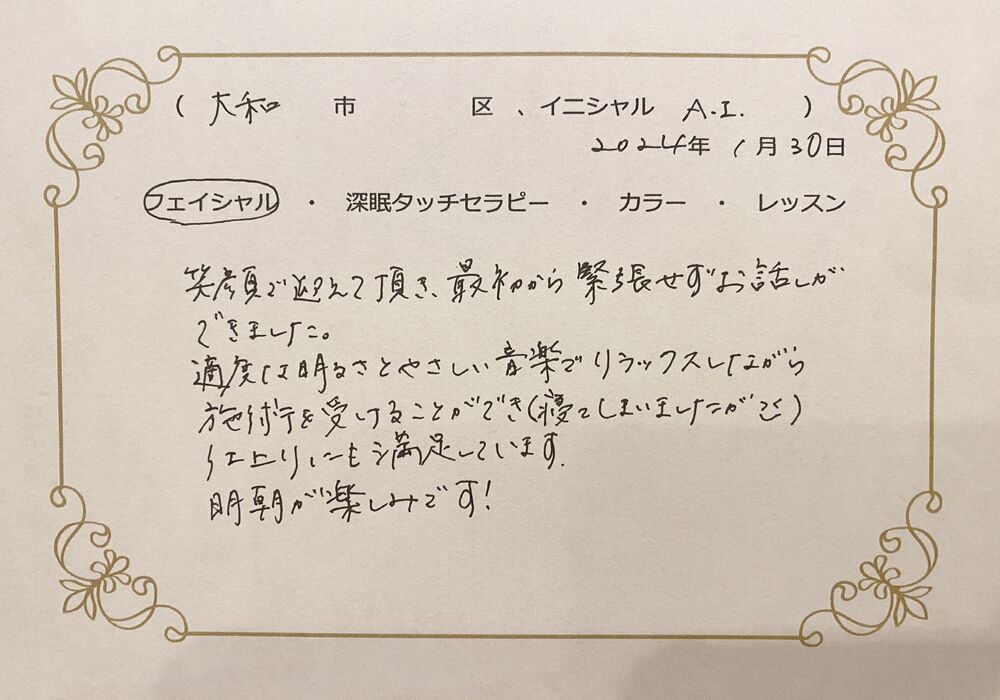 ( 大和 市 区 、イニシャル A.I. )
2024年 1月30日
フェイシャル ・ 深眠タッチセラピー ・ カラー ・ レッスン
笑顔で迎えて頂き、最初から緊張せずお話しが
できました。
適度な明るさとやさしい音楽でリラックスしながら
施術を受けることができ(寝てしまいましたが)
仕上りにも満足しています。
明朝が楽しみです!